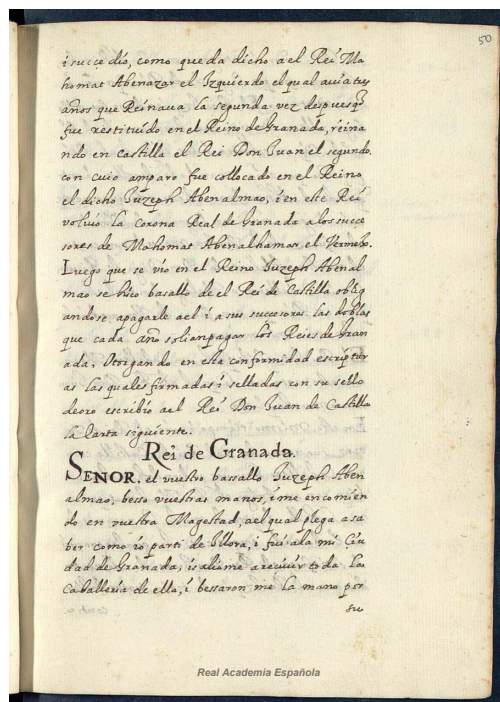 50
i succe dió, como queda dicho a el Rei Ma
homat Abenazar el Izquierdo el qual auia tres
años que Reinaua la segunda vez despues q̃
fue restituido en el Reino de Granada, reina
ndo en Castilla el Rei Don Juan el segundo.
con cuio amparo fue collocado en el Reino
el dicho Juzeph Abenalmao, i en este Rei
voluio la Corona Real de Granada a los succe
sores de Mahomat Abenalhamar el Vermejo.
Luego que se vio en el Reino Juzeph Abenal
mao se hiço basallo de el Rei de Castilla oblig
andose apagarle a el i a sus succosores las doblas
que cada año solian pagar los Reies de Gran
ada, Otorgando en esta conformidad escriptur
as las quales firmadas i selladas con su sello
de oro escribio a el Rei Don Juan de Castilla
la Carta siguiente.
Rei de Granada.
SEÑOR. el vuestro bassallo Juzeph Aben
almao, besso vuestras manos, i me encomien
do en vuestra Magestad, a el qual plega a sa
ber como io parti de Illora, i fui a la mi Ciu
dad de Granada, i salió me a reciuir toda la
Caballeria de ella, i bessaron me la mano por
su
Real Academia Española